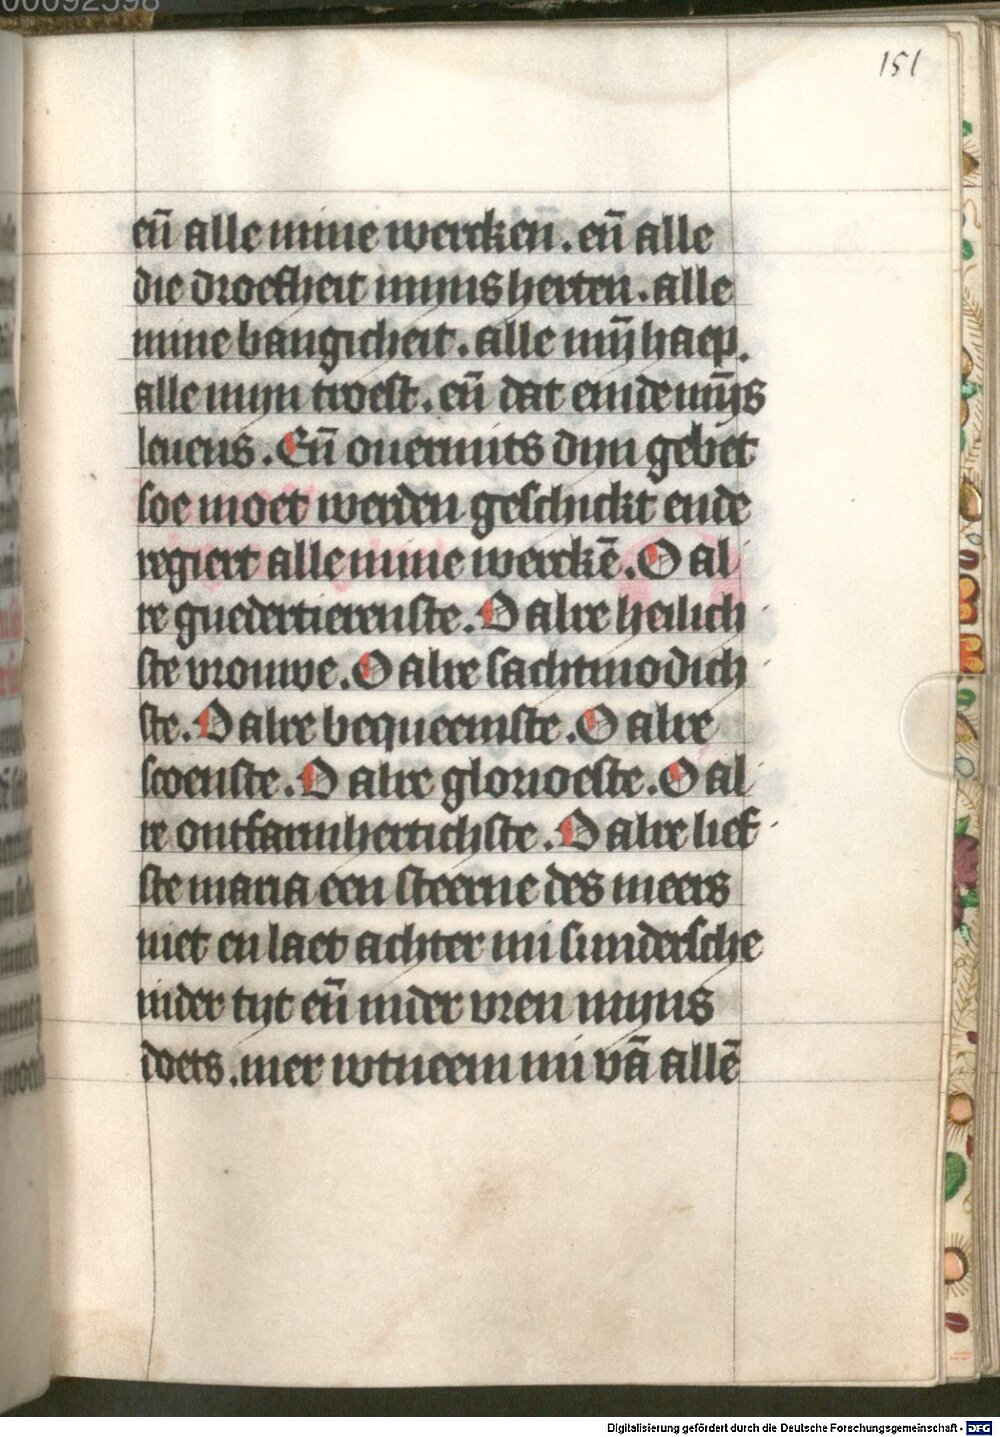 00092598
151
en̄ alle mine wercken. en̄ alle
die droefheit mijns herten. alle
mine bangicheit. alle mȳ haep.
alle mijn troest. en̄ dat einde mȳs
leuens. En̄ ouermits dijn gebet
soe moet werden geschickt ende
regiert alle mine werckē. O al
re guedertierenste. O alre heilich
ste vrouwe. O alre sachtmodich
ste. O alre bequeemste. O alre
scoenste. O alre glorioeste. O al
re ontfarmhertichste. O alre lief
ste maria een steerne des meers
niet en laet achter mi sundersche
inder tijt en̄ inder vren mijns
doets. mer wtneem mi vā allē
Digitalisierung gefördert durch die Deutsche Forschungsgemeinschaft - DFG